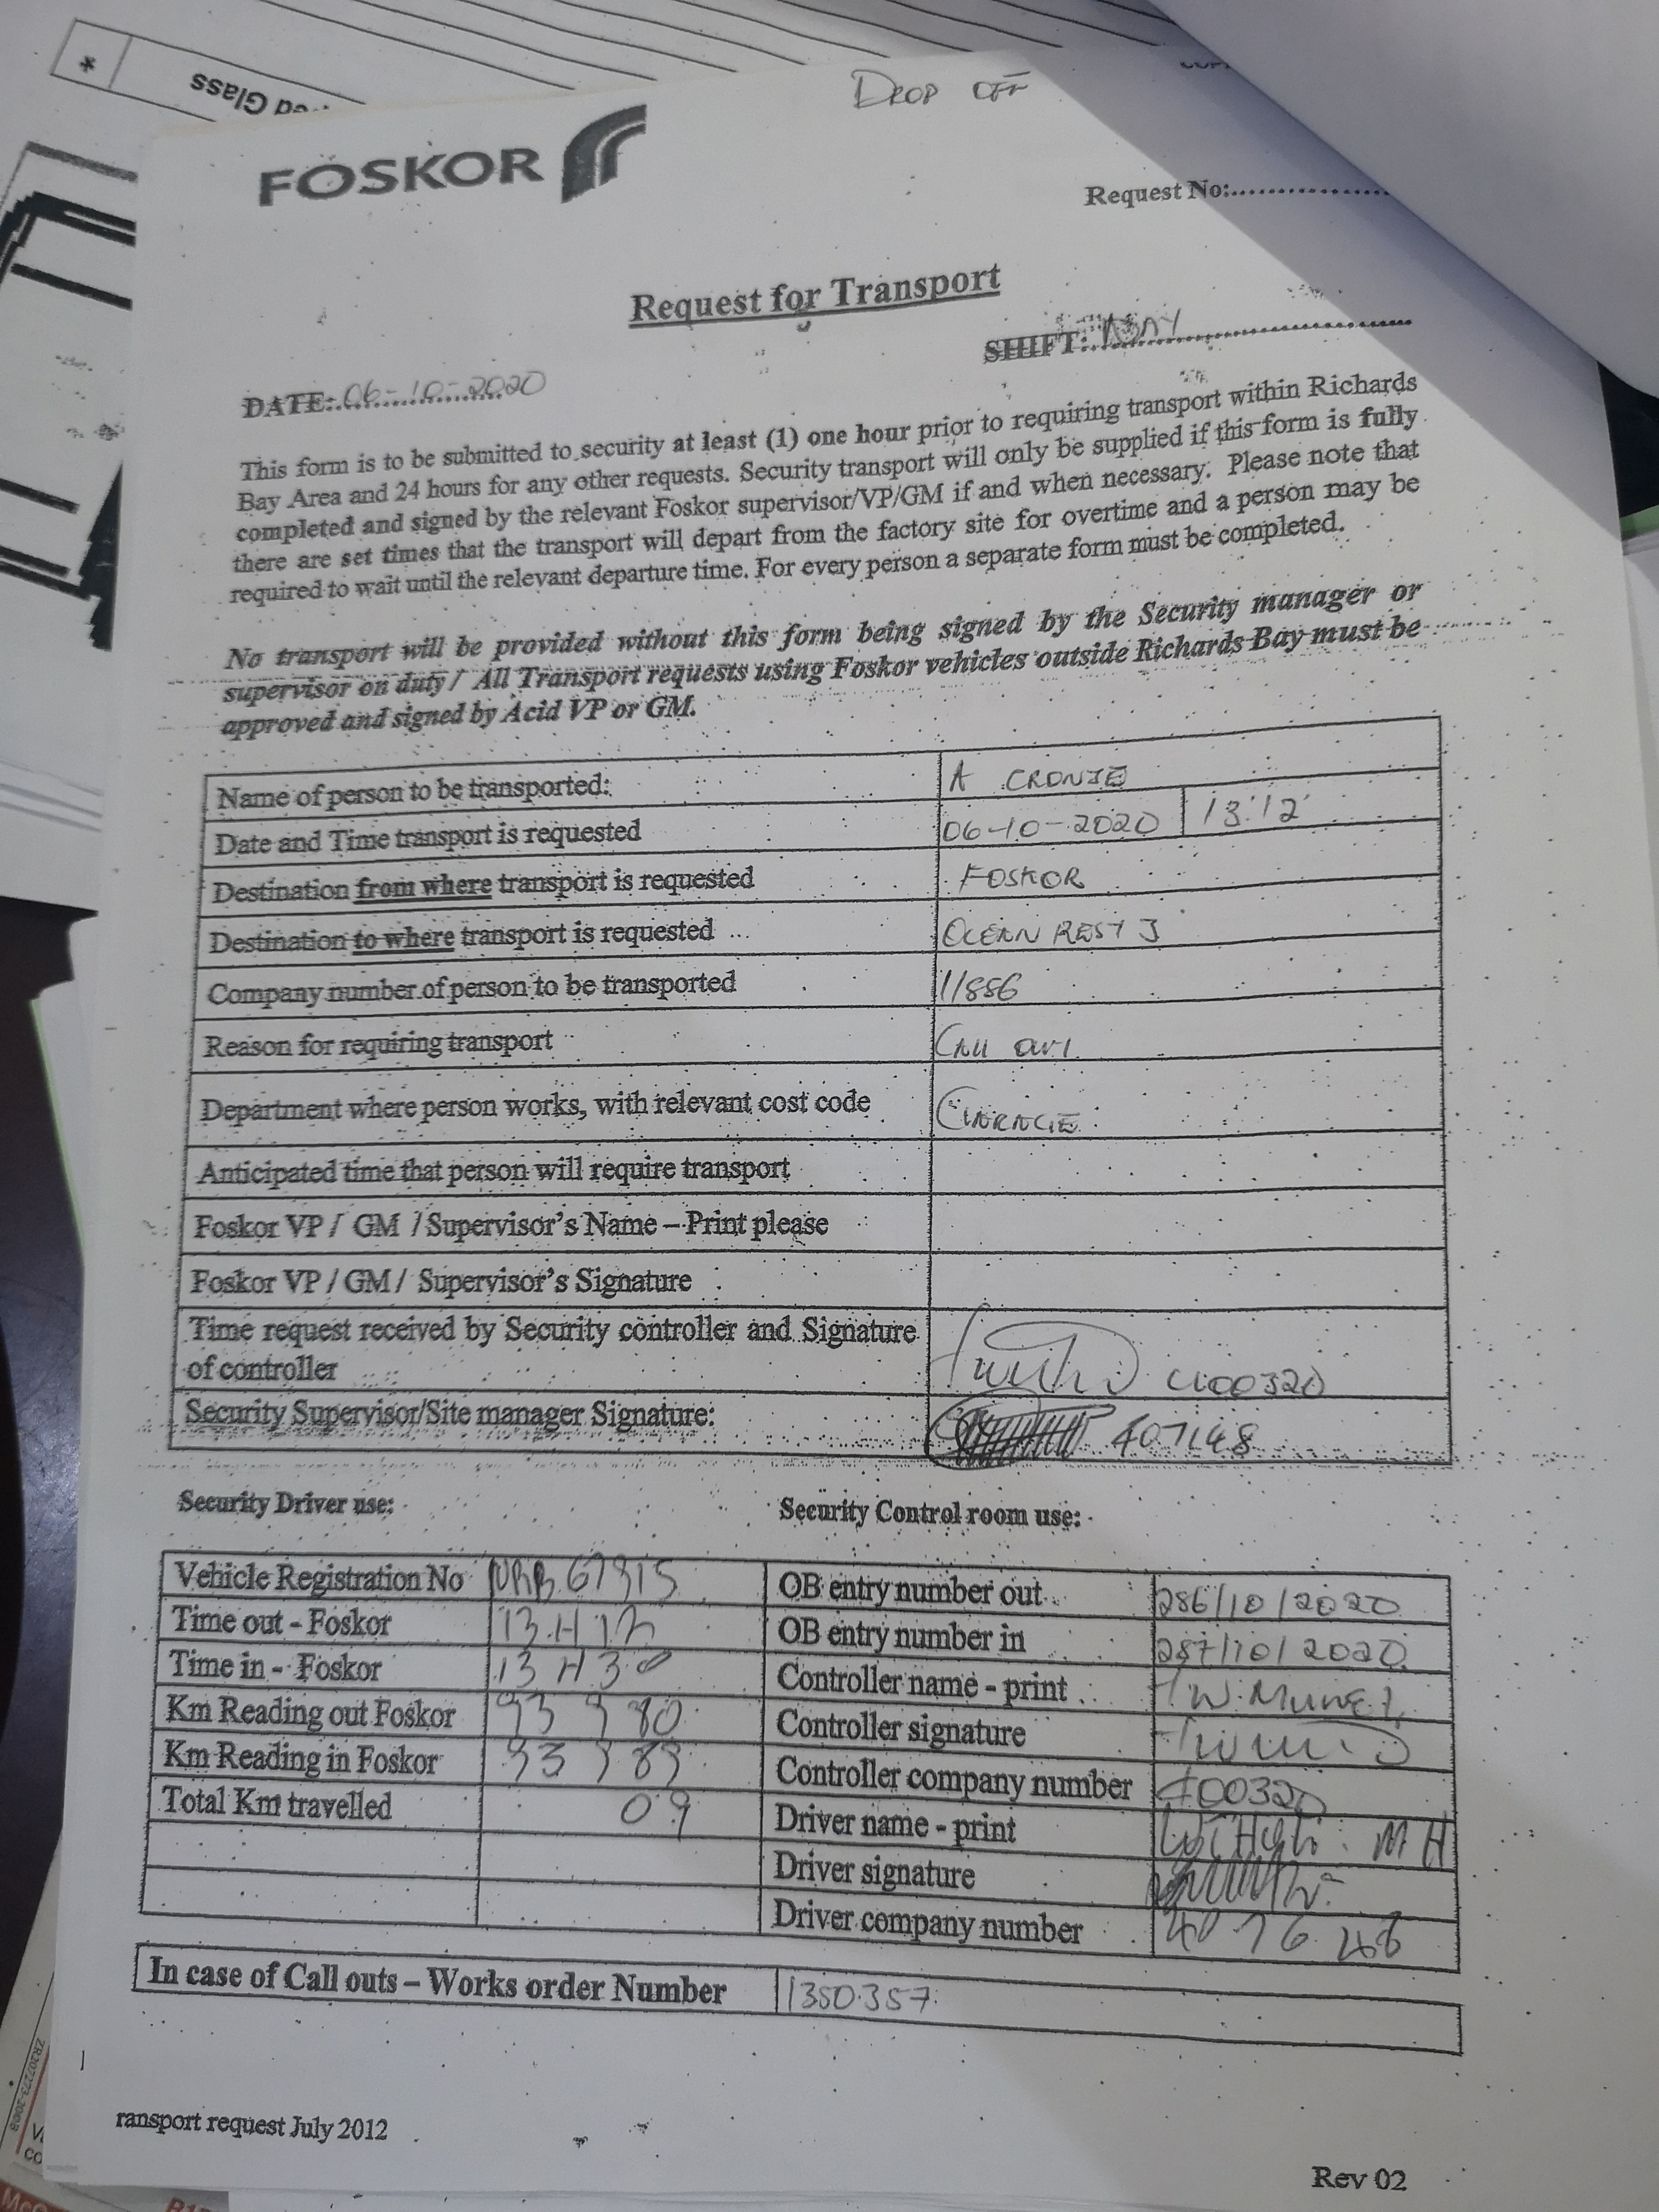 ed Glass
*
DROP OFF
FOSKOR
Request No:....................
Request for Transport
SHIFT: DAY
DATE: 06-10-2020
This form is to be submitted to security at least (1) one hour prior to requiring transport within Richards
Bay Area and 24 hours for any other requests. Security transport will only be supplied if this form is fully
completed and signed by the relevant Foskor supervisor/VP/GM if and when necessary. Please note that
there are set times that the transport will depart from the factory site for overtime and a person may be
required to wait until the relevant departure time. For every person a separate form must be completed.
No transport will be provided without this form being signed by the Security manager or
supervisor on duty / All Transport requests using Foskor vehicles outside Richards Bay must be
approved and signed by Acid VP or GM.
Name of person to be transported: A CRONJE
Date and Time transport is requested 06-10-2020 13:12
Destination from where transport is requested FOSKOR
Destination to where transport is requested OCEAN REST 3
Company number of person to be transported 11886
Reason for requiring transport CALL OUT
Department where person works, with relevant cost code
Anticipated time that person will require transport
Foskor VP / GM / Supervisor's Name – Print please
Foskor VP / GM / Supervisor's Signature
Time request received by Security controller and Signature
of controller 400320
Security Supervisor/Site manager Signature:
Security Driver use: Security Control room use:
Vehicle Registration No OB entry number out 286/10/2020
Time out - Foskor 13H12 OB entry number in 287/10/2020
Time in - Foskor 13H30 Controller name - print
Km Reading out Foskor Controller signature
Km Reading in Foskor Controller company number 400320
Total Km travelled 09 Driver name - print
Driver signature
Driver company number
In case of Call outs – Works order Number 1350357
ransport request July 2012
Rev 02